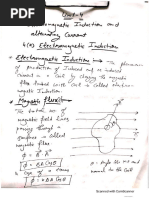 Unit-4
Electromagnetic Induction and
alternating Current
4(a) Electromagnetic Induction
Electromagnetic Induction :- is the phenomenon
of production of Induced emf or induced
Current in a Coil by changing the magnetic
flux linked with Coil is Called electromagnetic
Induction.
Magnetic flux :-
The total no. of
magnetic field lines
passing through a
surface is
called magnetic
flux
ϕ = BA Cosθ
ϕ = B A Cosθ
Scanned with CamScanner